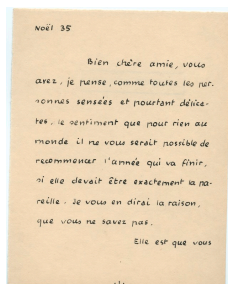 Noël 35
Bien chère amie, vous
avez, je pense, comme toutes les per-
sonnes sensées et pourtant délica-
tes, le sentiment que pour rien au
monde il ne vous serait possible de
recommencer l'année qui va finir,
si elle devait être exactement la pa-
reille. Je vous en dirai la raison,
que vous ne savez pas.
Elle est que vous